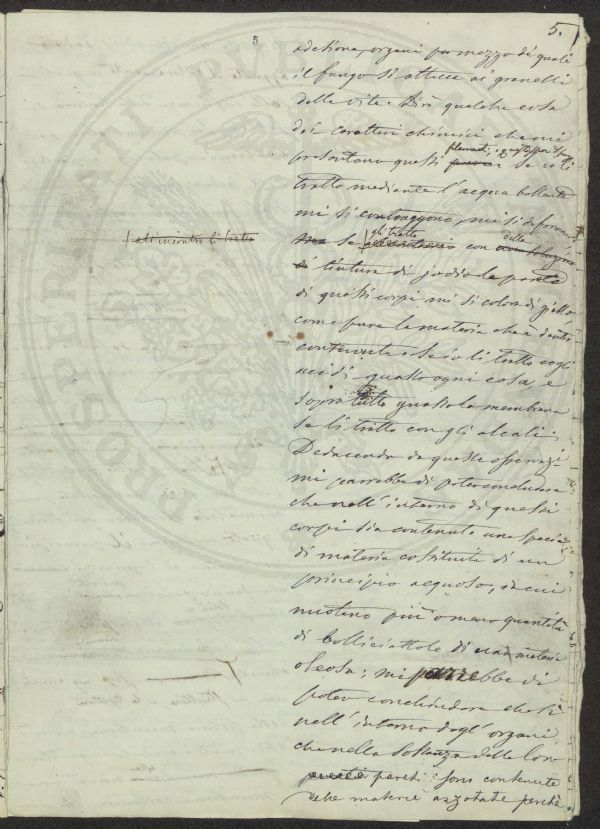 5
5.
adesione, organi per mezzo de' quali
il fungo si attacca ai granelli
della vite. Dirò qualche cosa
dei caratteri chimici che mi
presentano questi se io li
tratto mediante l'acqua bollente
mi si contraggono, mi si deformano
all'incontro li tratto
gli tratto
se con delle
tintura di jodio le pareti
di questi corpi mi si colora di giallo
come pure la materia che è dentro
contenuta. Se io li tratto cogli
acidi guasto ogni cosa, e
sopra tutto guasto la membrana
se li tratto con gli alcali.
Deducendo da queste osservazi-
mi parrebbe di poter concludere
che nell'interno di questi
corpi sia contenuta una specie
di materia costituita di un
principio acquoso, in cui
nuotino più o meno quantità
di bolliciattole di una materia
oleosa; mi parrebbe di
poter conchiudere che sì
nell'interno degl'organi
che nella sostanza delle loro
pareti sono contenute
delle materie azotate perchè